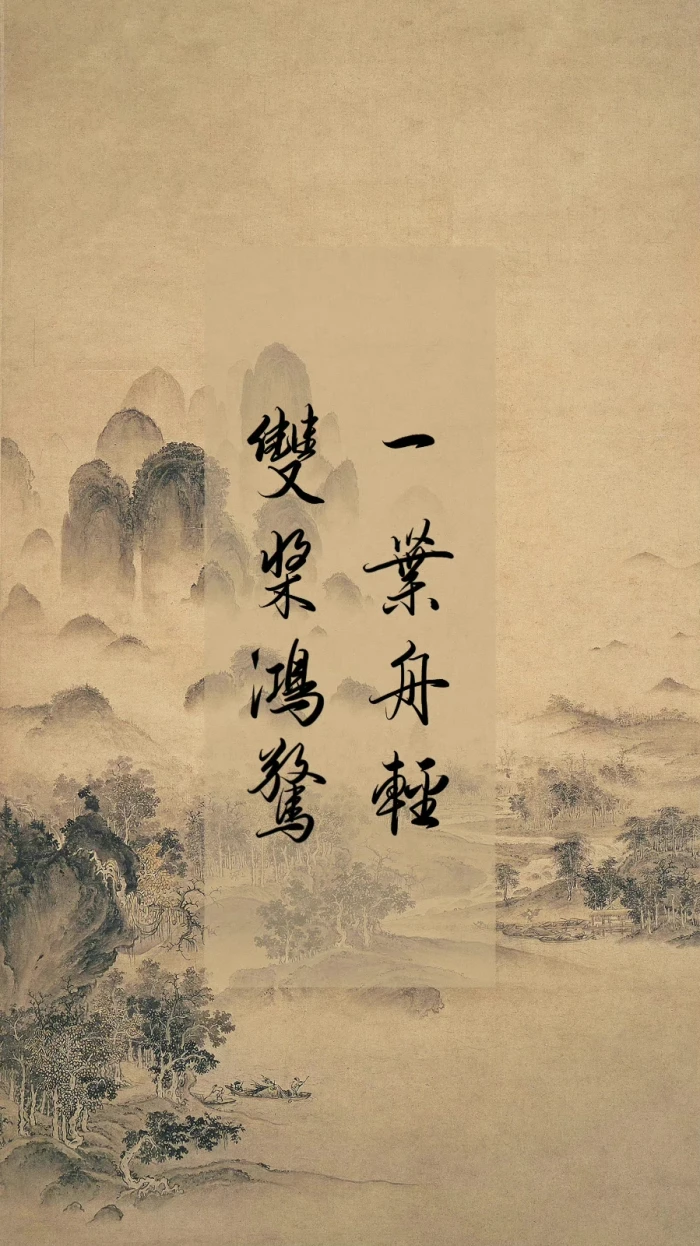 一葉舟輕
雙槳鴻驚